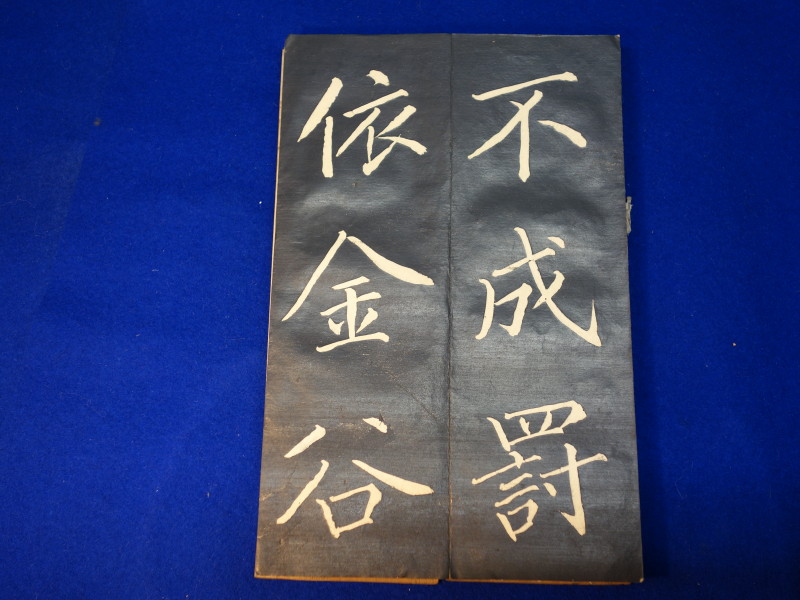 不成罸
依金谷